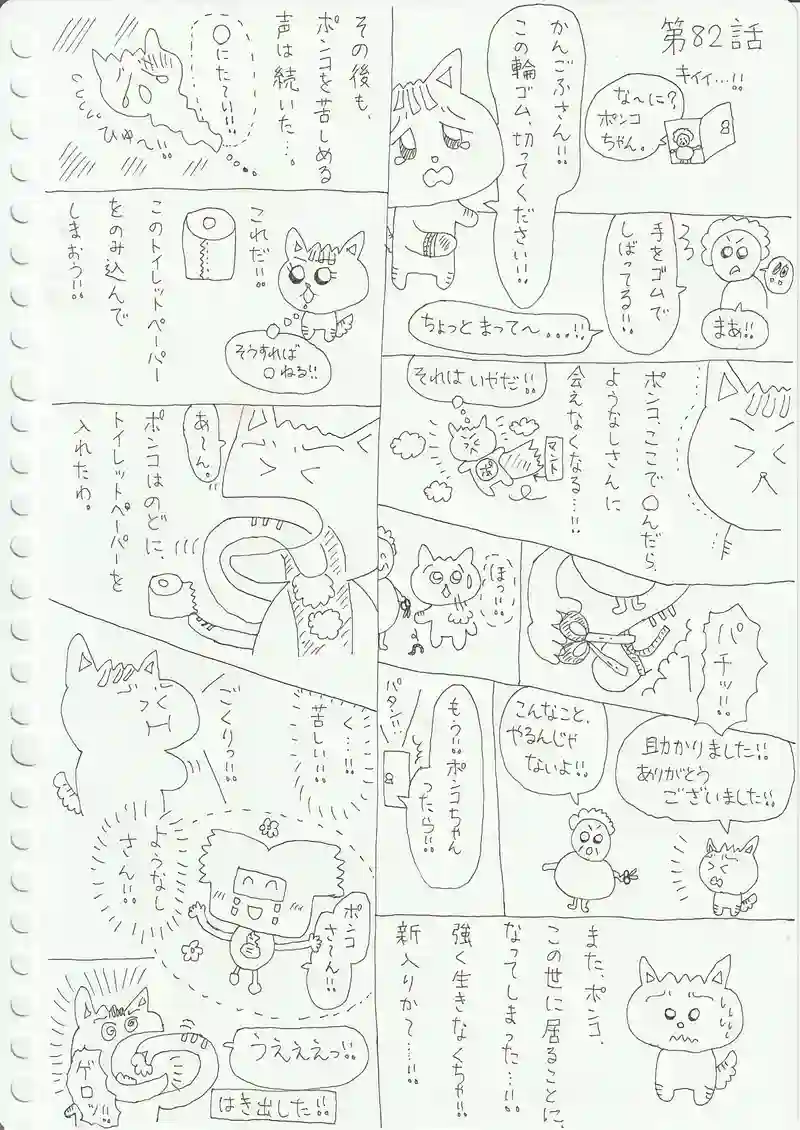 第82話
キイィ…!!
な〜に?
ポンコ
ちゃん。
8
かんごふさん!!
この輪ゴム、切ってください!!
まあ!!
手をゴムで
しばってる!!
ちょっとまって〜…!!
ポンコ、ここで〇んだら、
ようなしさんに
会えなくなる…!!
それはいやだ!!
マント
ほっ!!
パチッ!!
助かりました!!
ありがとう
ございました!!
こんなこと、
やるんじゃ
ないよ!!
もう!!ポンコちゃん
ったら!!
パタン!!
8
また、ポンコ、
この世に居ることに、
なってしまった…!!
強く生きなくちゃ!!
新入りか〜…!!
その後も、
ポンコを苦しめる
声は続いた…。
〇にた〜い!!
ひゅ〜!!
これだ!!
このトイレットペーパー
をのみ込んで
しまおう!!
そうすれば
〇ねる!!
あ〜ん。
ポンコはのどに、
トイレットペーパーを
入れたわ。
く…!!
苦しい!!
ごくりっ!!
ようなし
さん!!
ポンコ
さ〜ん!!
うえええっ!!
ゲロッ!!
はき出した!!